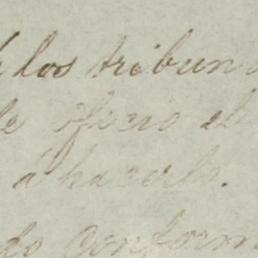 á los tribun
de oficio el
á hacerlo.
do conform